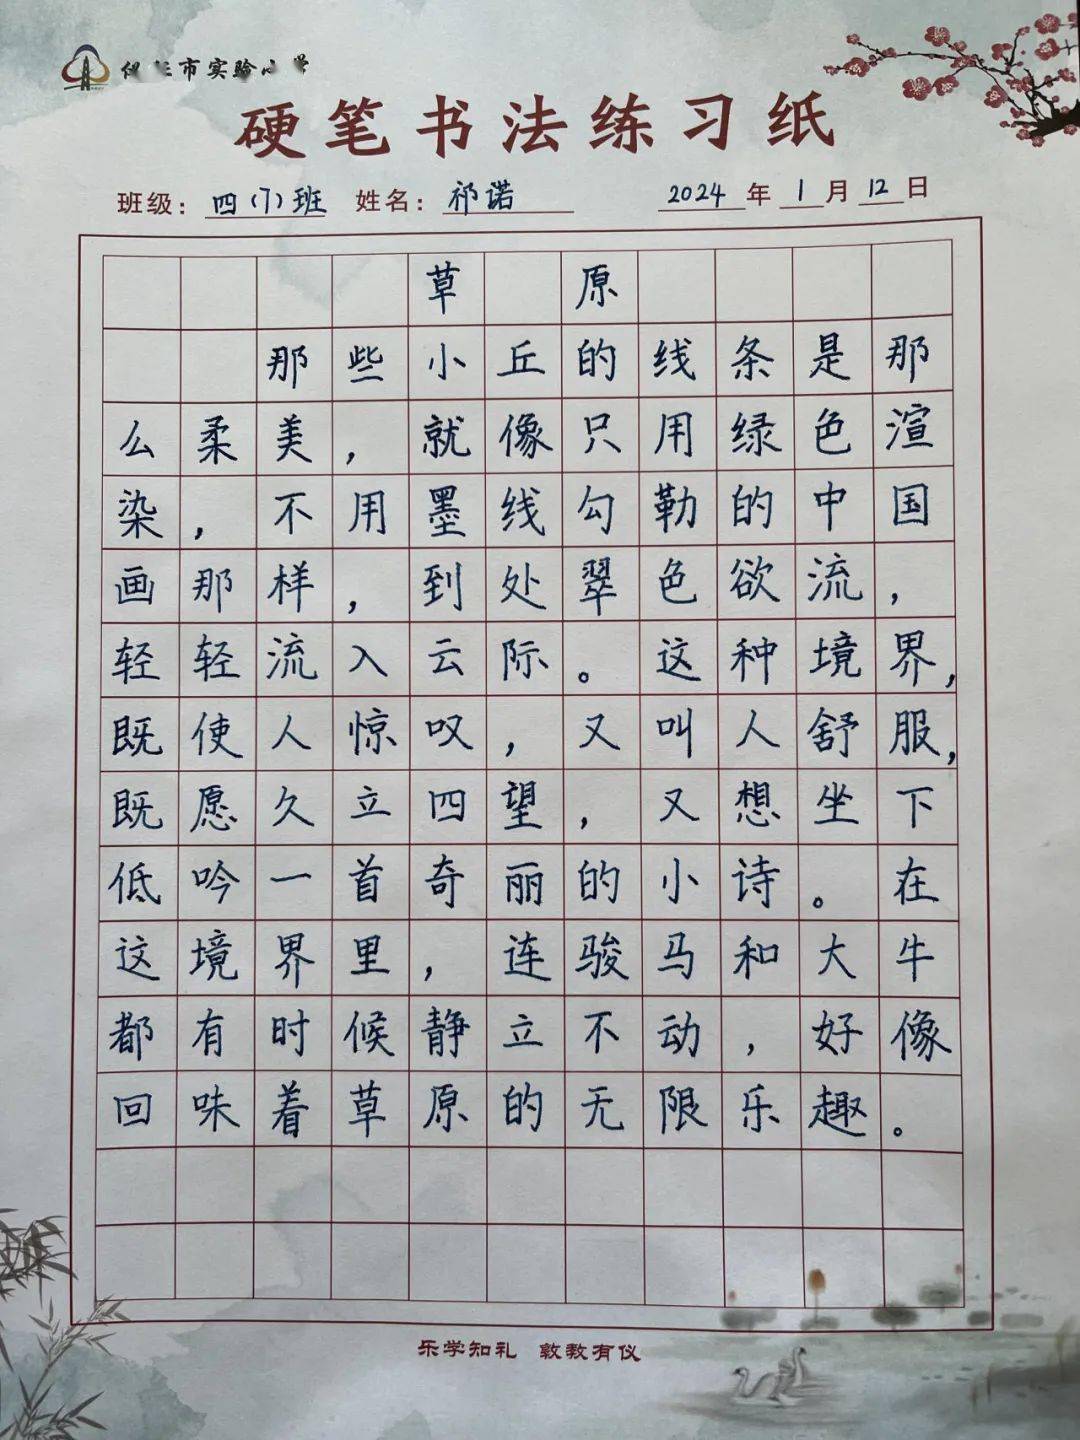 市实验小学
硬笔书法练习纸
班级：四（7）班 姓名：祁诺 2024年1月12日
草原
那些小丘的线条是那
么柔美，就像只用绿色渲
染，不用墨线勾勒的中国
画那样，到处翠色欲流，
轻轻流入云际。这种境界，
既使人惊叹，又叫人舒服，
既愿久立四望，又想坐下
低吟一首奇丽的小诗。在
这境界里，连骏马和大牛
都有时候静立不动，好像
回味着草原的无限乐趣。
乐学知礼 敦教有仪